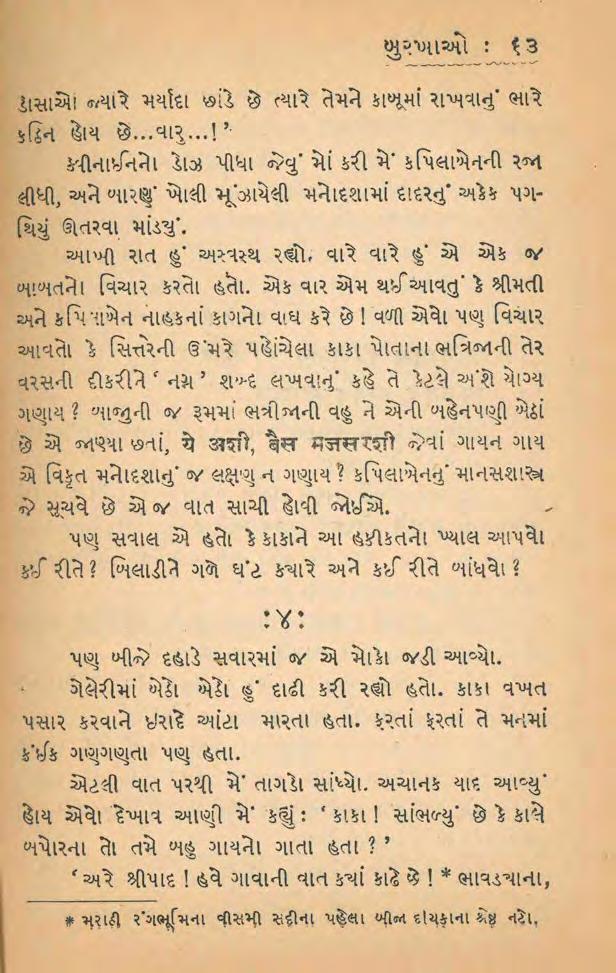 બુરખાઓ : ૬૩
ડોસાઓ જ્યારે મર્યાદા છાંડે છે ત્યારે તેમને કાબૂમાં રાખવાનું ભારે
કઠિન હોય છે...વારુ...!’
ક્વીનાઈનનો ડોઝ પીધા જેવું મોં કરી મેં કપિલાબેનની રજા
લીધી, અને બારણું ખોલી મૂંઝાયેલી મનોદશામાં દાદરનું અકેક પગ-
થિયું ઊતરવા માંડ્યું.
આખી રાત હું અસ્વસ્થ રહ્યો. વારે વારે હું એ એક જ
બાબતનો વિચાર કરતો હતો. એક વાર એમ થઈ આવતું કે શ્રીમતી
અને કપિલાબેન નાહકનાં કાગનો વાઘ કરે છે ! વળી એવો પણ વિચાર
આવતો કે સિત્તેરની ઉંમરે પહોંચેલા કાકા પોતાના ભત્રિજાની તેર
વરસની દીકરીને ‘ નગ્ન ’ શબ્દ લખવાનું કહે તે કેટલે અંશે યોગ્ય
ગણાય ? બાજુની જ રૂમમાં ભત્રીજાની વહુ ને એની બહેનપણી બેઠાં
છે એ જાણ્યા છતાં, ये अशी, बैस मजसरशी જેવાં ગાયન ગાય
એ વિકૃત મનોદશાનું જ લક્ષણ ન ગણાય ? કપિલાબેનનું માનસશાસ્ત્ર
જે સૂચવે છે એ જ વાત સાચી હોવી જોઈએ.
પણ સવાલ એ હતો કે કાકાને આ હકીકતનો ખ્યાલ આપવો
કઈ રીતે ? બિલાડીને ગળે ઘંટ ક્યારે અને કઈ રીતે બાંધવો ?
:૪:
પણ બીજે દહાડે સવારમાં જ એ મોકો જડી આવ્યો.
ગેલેરીમાં બેઠો બેઠો હું દાઢી કરી રહ્યો હતો. કાકા વખત
પસાર કરવાને ઇરાદે આંટા મારતા હતા. ફરતાં ફરતાં તે મનમાં
કંઈક ગણગણતા પણ હતા.
એટલી વાત પરથી મેં તાગડો સાંધ્યો. અચાનક યાદ આવ્યું
હોય એવો દેખાવ આણી મેં કહ્યું : ‘ કાકા ! સાંભળ્યું છે કે કાલે
બપોરના તો તમે બહુ ગાયનો ગાતા હતા ? ’
‘ અરે શ્રીપાદ ! હવે ગાવાની વાત ક્યાં કાઢે છે ! * ભાવડ્યાના,
* મરાઠી રંગભૂમિના વીસમી સદીના પહેલા બીજા દાયકાના શ્રેષ્ઠ નટો.